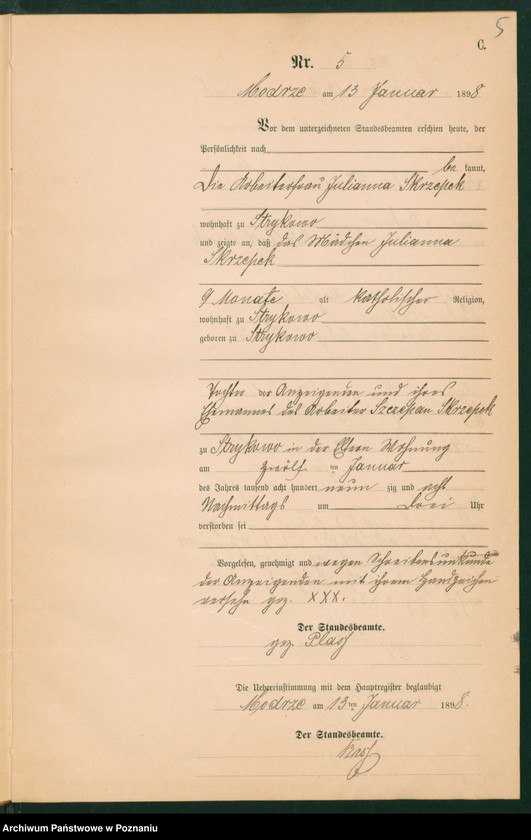 5
C.
Nr. 5
Modrze am 13 Januar 1898
Vor dem unterzeichneten Standesbeamten erschien heute, der
Persönlichkeit nach
be kannt,
Die Arbeiterfrau Julianna Skrzepek
wohnhaft zu Strykowo
und zeigte an, daß das Mädchen Julianna
Skrzepek
9 Monate alt katholischer Religion,
wohnhaft zu Strykowo
geboren zu Strykowo
Tochter der Anzeigenden und ihres
Ehemannes des Arbeiter Szczepan Skrzepek
zu Strykowo in der Eltern Wohnung
am zwölf ten Januar
des Jahres tausend acht hundert neun zig und acht
Nachmittags um drei Uhr
verstorben sei
Vorgelesen, genehmigt und wegen Schreibensunkunde
der Anzeigenden mit ihrem Handzeichen
versehn gez. XXX.
Der Standesbeamte.
gez.
Die Uebereinstimmung mit dem Hauptregister beglaubigt
Modrze am 13ten Januar 1898.
Der Standesbeamte.
Archiwum Państwowe w Poznaniu